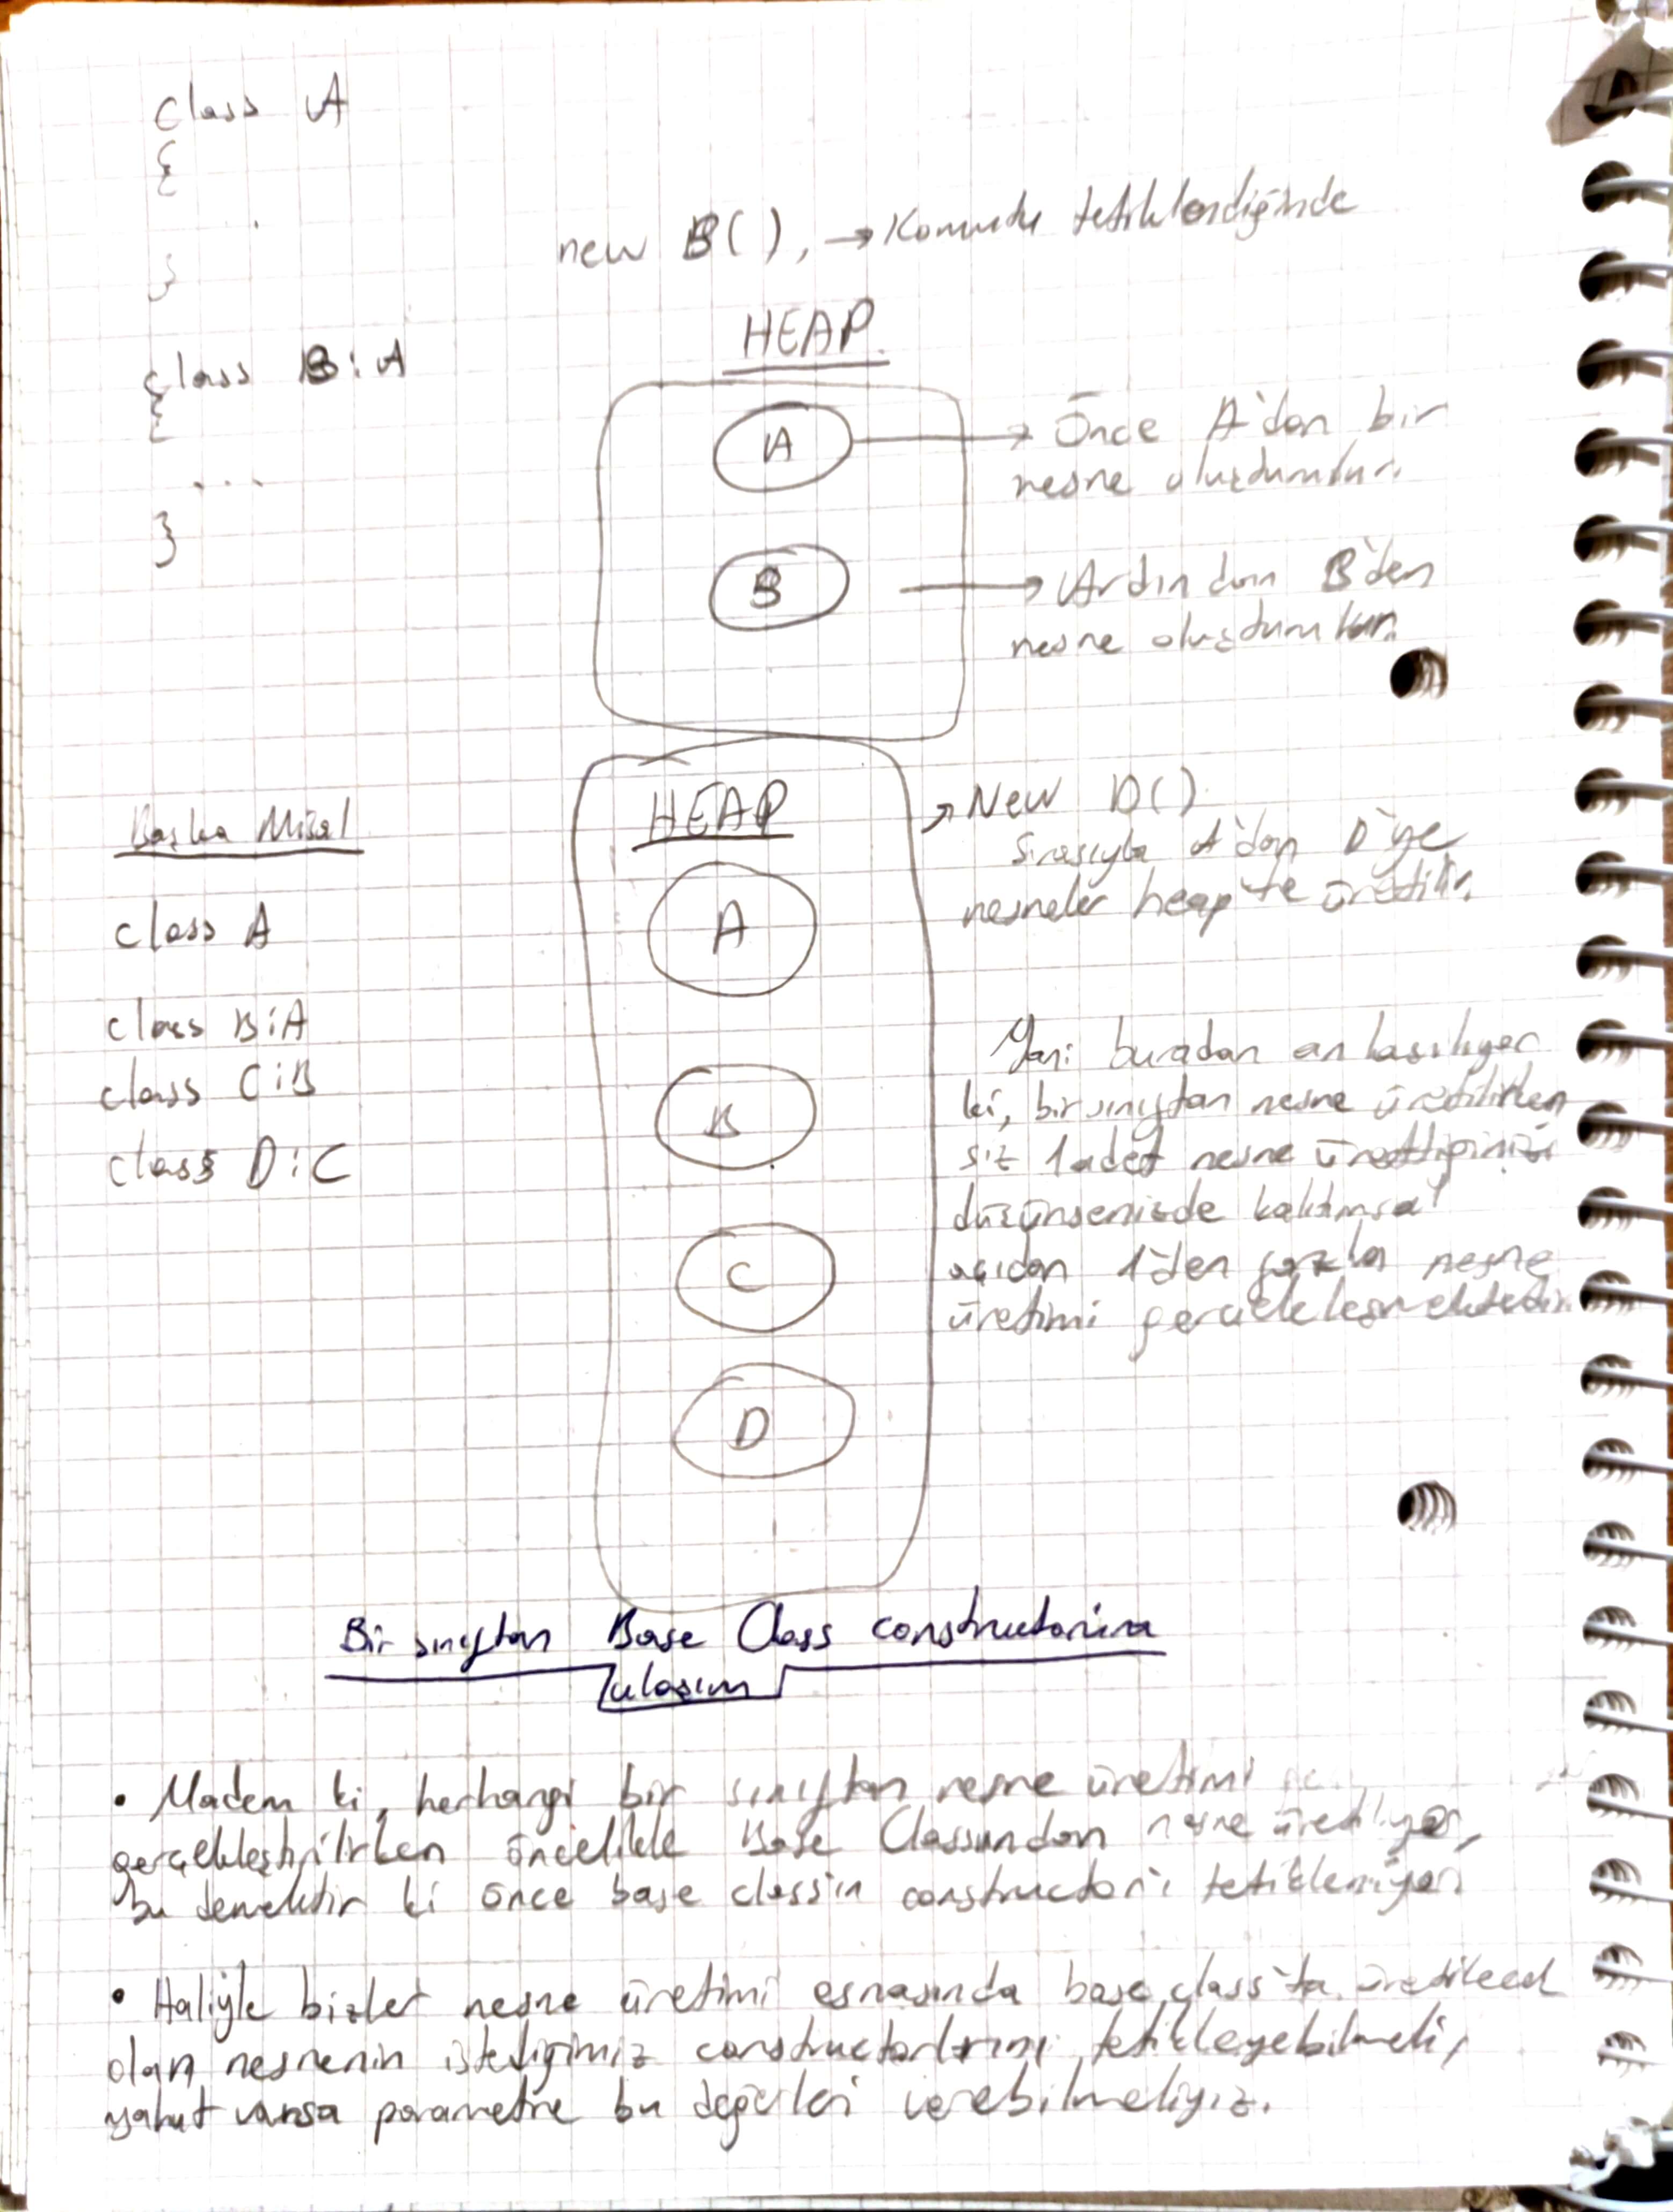 class A
{
.
}
new B(), → Komutu tetiklendiğinde
class B : A
{
...
}
HEAP
A
→ Önce A'dan bir
nesne oluşdurulur.
B
→ Ardından B'den
nesne oluşdurulur.
Başka Misal
class A
class B : A
class C : B
class D : C
HEAP
A
B
C
D
→ New D()
Sırasıyla A'dan D'ye
nesneler heap'te üretilir.
Yani buradan anlaşılıyor
ki, bir sınıftan nesne üretilirken
siz 1 adet nesne ürettiğinizi
düşünsenizde kalıtımsal
açıdan 1'den fazla nesne
üretimi gerçekleşmektedir.
Bir sınıftan Base Class constructorına
ulaşım
• Madem ki, herhangi bir sınıftan nesne üretimi
gerçekleştirilirken öncelikle Base Classından nesne üretiliyor,
bu demektir ki önce base class'ın constructor'ı tetikleniyor.
• Haliyle bizler nesne üretimi esnasında base class'ta üretilecek
olan nesnenin istediğimiz constructorlarını tetikleyebilmeli,
yahut varsa parametre bu değerleri verebilmeliyiz.